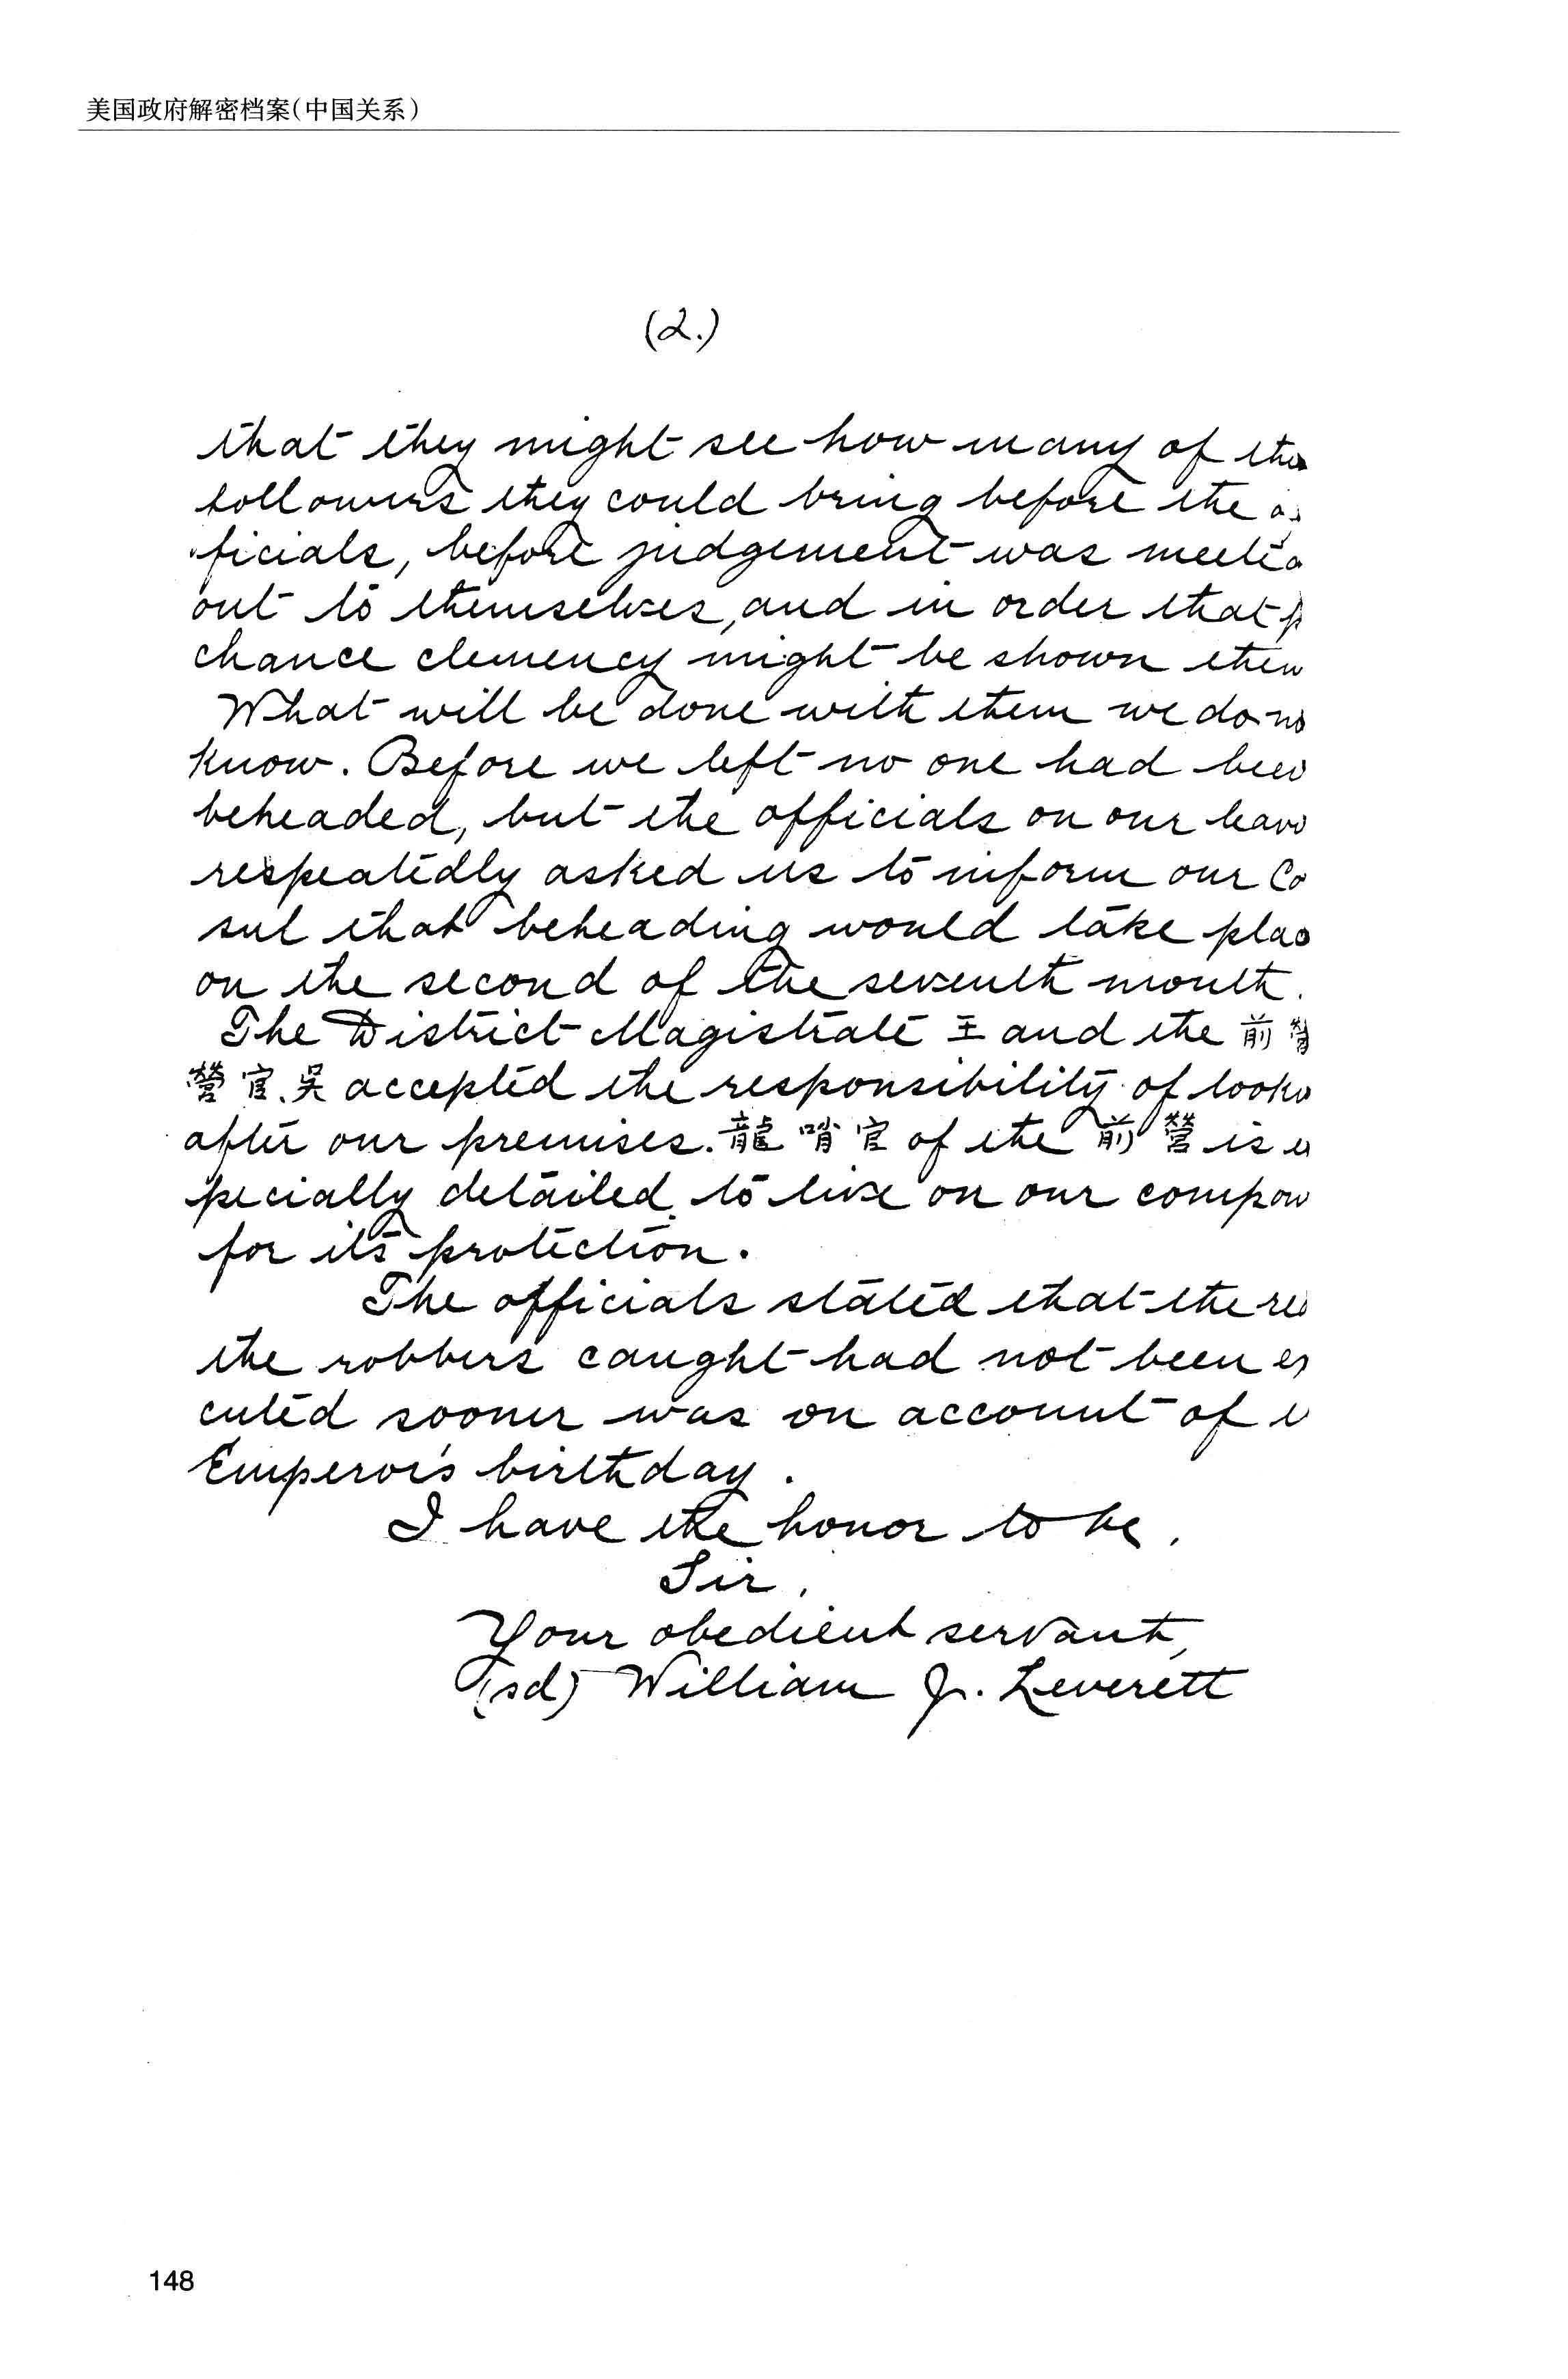 美国政府解密档案(中国关系)
(2.)
that they might see how many of
followers they could bring before the
ficials, before judgement was
out to themselves, and in order that
chance clemency might be shown
What will be done with them we do
know. Before we left no one had
beheaded, but the officials on our
respeatedly asked us to inform our Co
sul that beheading would take
on the second of the seventh month.
The District Magistrate 王 and the 前
營官吳 accepted the responsibility of
after our premises. 龍哨官 of the 前營 is
pecially detailed to live on our
for its protection.
The officials stated that the
the robbers caught had not been
cuted sooner was on account of
Emperor's birthday.
I have the honor to be,
Sir,
Your obedient servant,
(sd) William J. Leverett
148